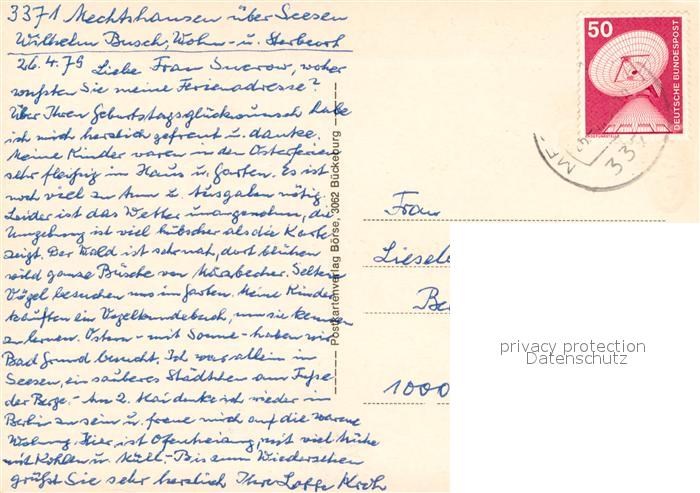 3371 Mechtshausen über Seesen
Wilhelm Busch, Wohn- u. Sterbeort
26.4.79 Liebe Frau , woher
wußten Sie meine Ferienadresse?
Über Ihren Geburtstagsglückwunsch habe
ich mich herzlich gefreut u. danke.
Meine Kinder waren in den Osterferien
sehr fleißig im Haus u. Garten. Es ist
noch viel zu tun u. Ausgaben nötig.
Leider ist das Wetter unangenehm, die
Umgebung ist viel hübscher als die Karte
zeigt. Der Wald ist sehr nah, dort blühen
wild ganze Büsche von Märzbecher. Seltene
Vögel besuchen uns im Garten. Meine Kinder
kauften ein Vogelkundebuch, um sie kennen
zu lernen. Ostern - mit Sonne - haben wir
Bad Grund besucht. Ich war allein in
Seesen, ein sauberes Städtchen am Fuße
der Berge. - Am 2. Mai denke ich wieder in
Berlin zu sein u. freue mich auf die warme
Wohnung. Hier ist Ofenheizung, mit viel Mühe
mit Kohlen u. Müll. - Bis zum Wiedersehen
grüßt Sie sehr herzlich Ihre Lotte
Postkartenverlag Börse, 3062 Bückeburg
50
DEUTSCHE BUNDESPOST
337
Frau
Liesel
Be
1000
privacy protection
Datenschutz